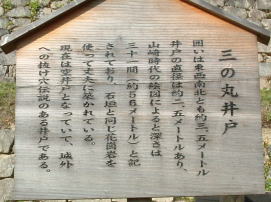 三の丸井戸
囲いは東西南北とも約三.五メートル
井戸の直径は約二.五メートルあり、
山崎時代の絵図によると深さは
三十一間(約56メートル)と記
されており、石垣と同じ花崗岩を
使って丈夫に築かれている。
現在は空井戸となっていて、城外
への抜け穴伝説のある井戸である。